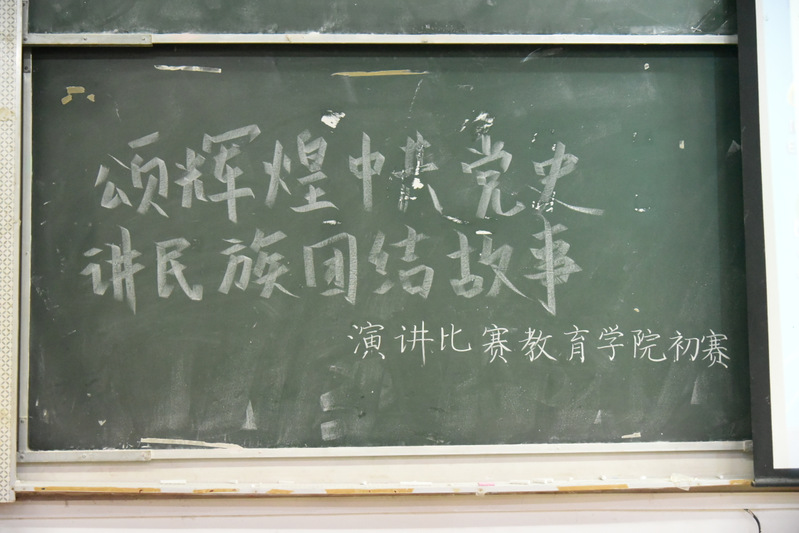 颂辉煌中共党史
讲民族团结故事
演讲比赛教育学院初赛